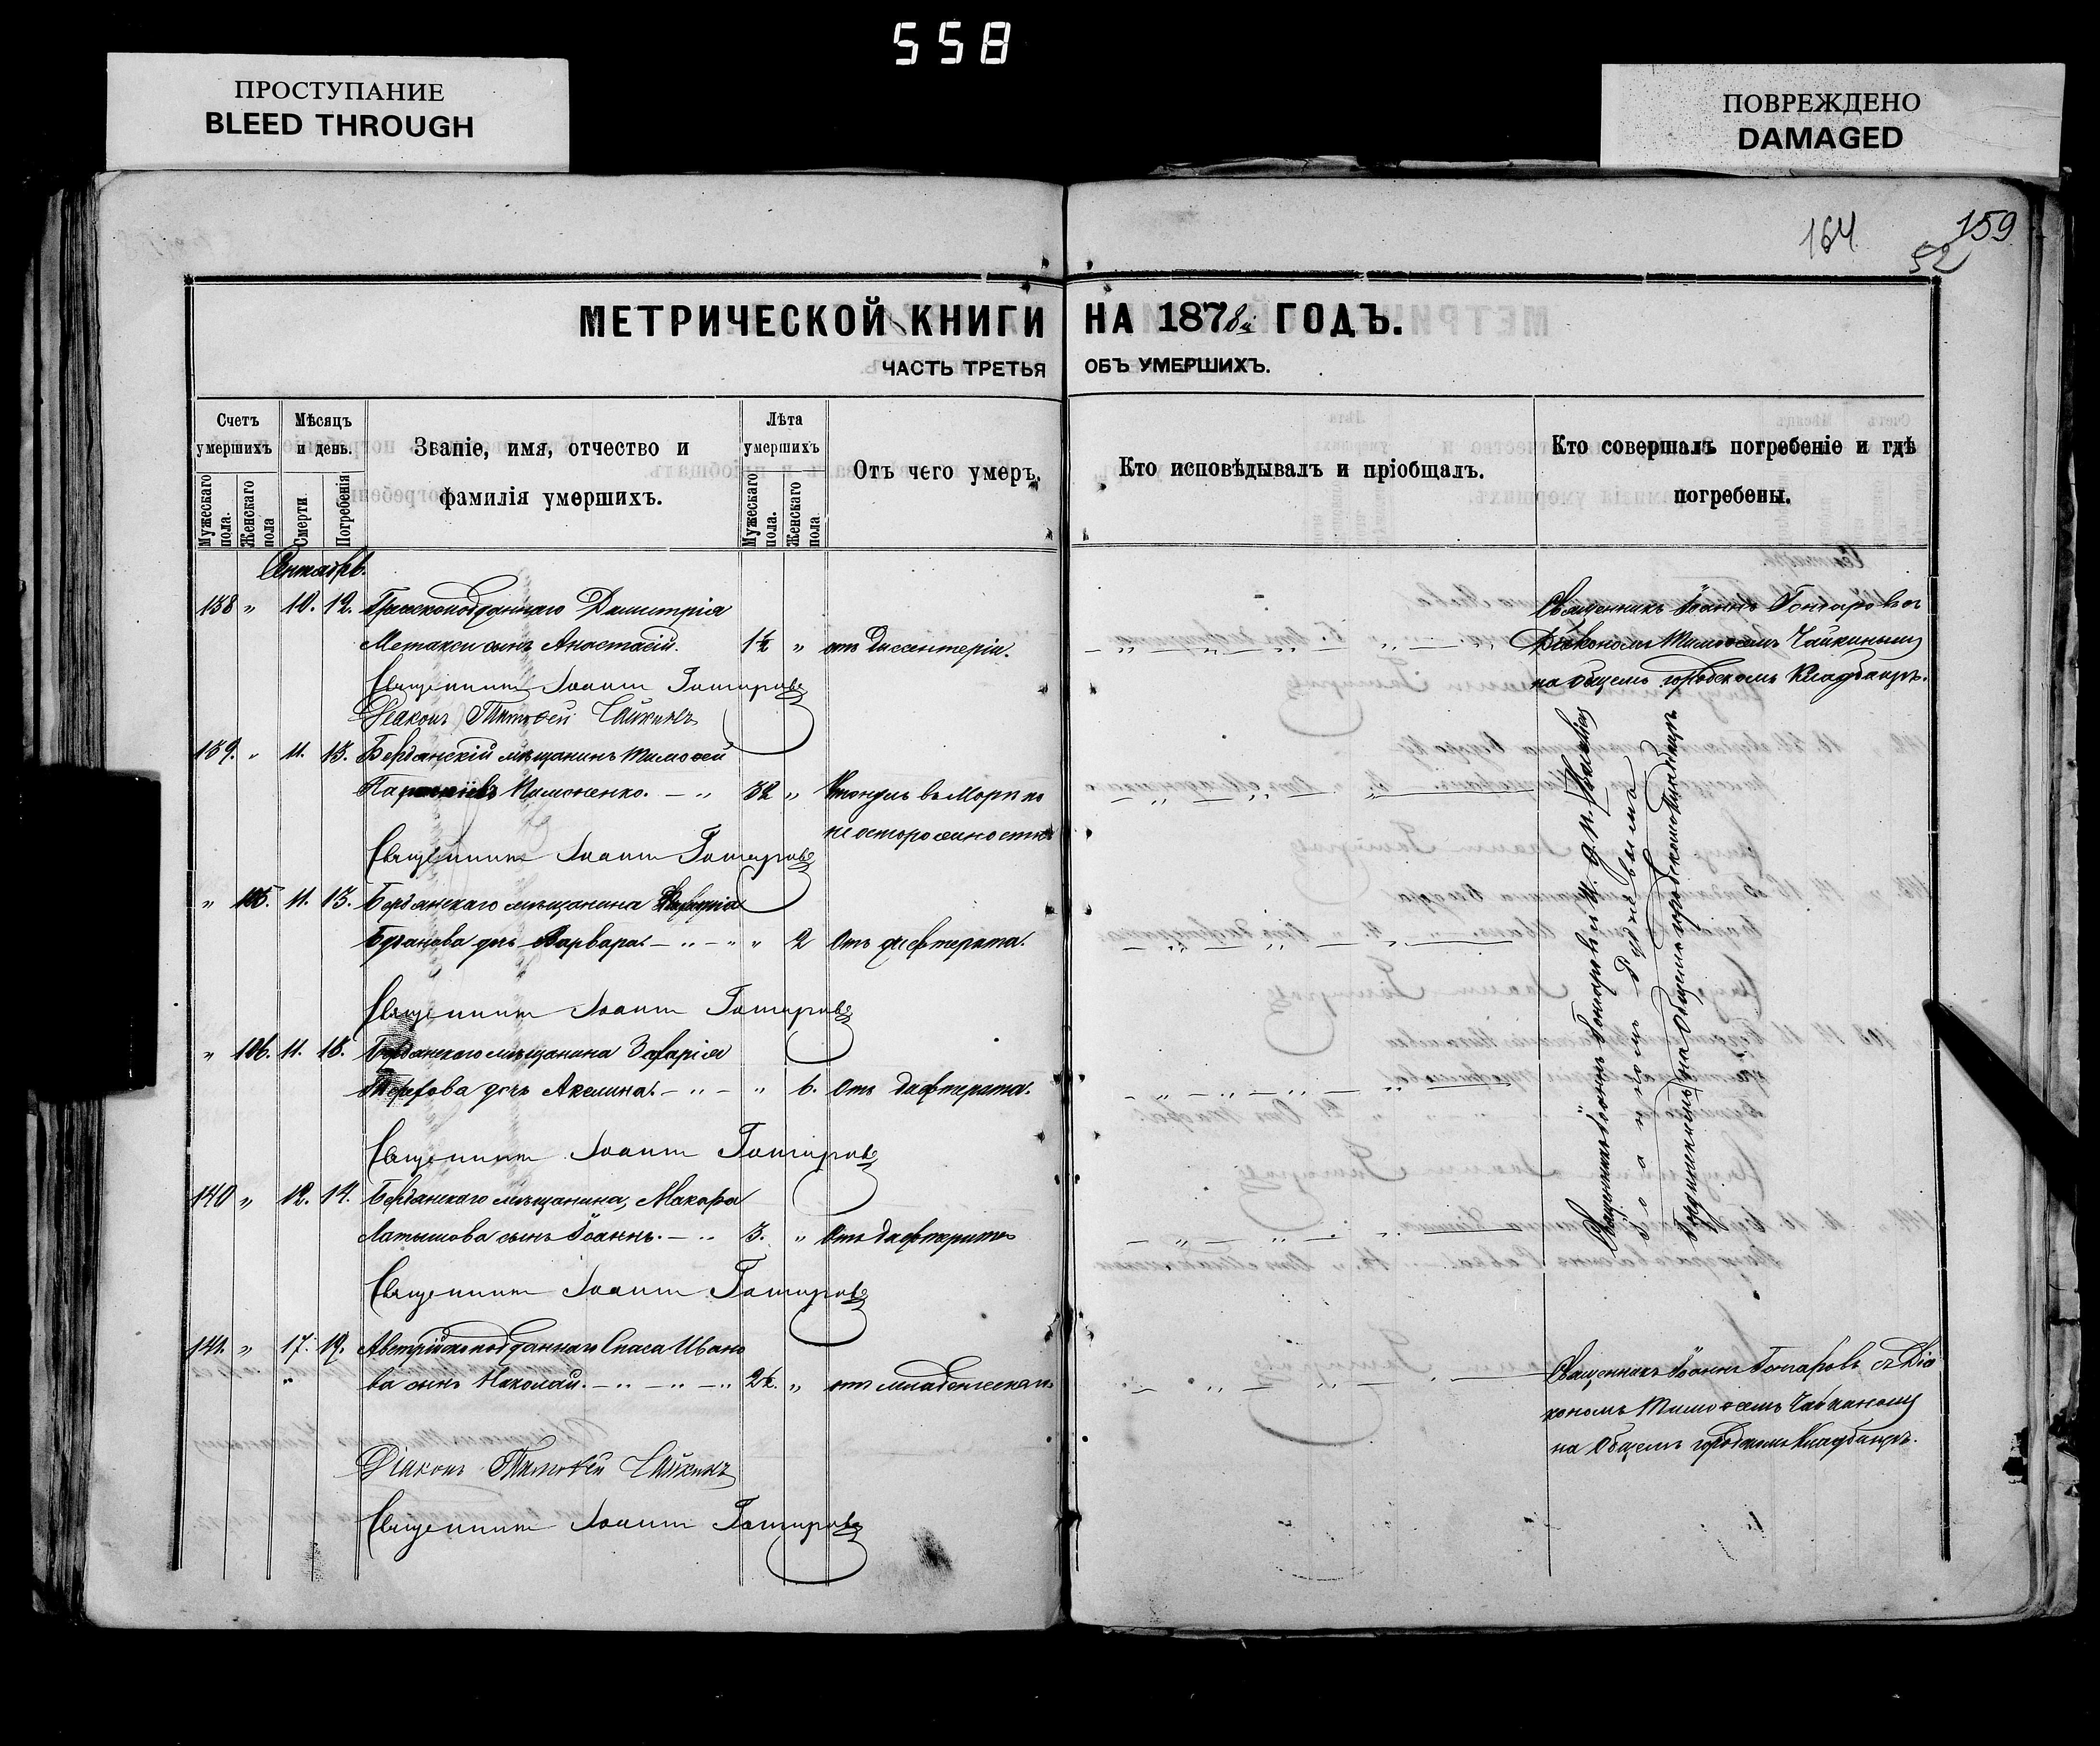 558
ПРОСТУПАНИЕ
BLEED THROUGH
ПОВРЕЖДЕНО
DAMAGED
164
159
52
МЕТРИЧЕСКОЙ КНИГИ НА 1878й ГОДЪ.
ЧАСТЬ ТРЕТЬЯ ОБЪ УМЕРШИХЪ.
Счетъ умершихъ
Мужескаго пола.
Женскаго пола
Мѣсяцъ и день.
Смерти
Погребенія
Званіе, имя, отчество и фамилія умершихъ.
Лѣта умершихъ
Мужескаго пола.
Женскаго пола
Отъ чего умеръ.
Кто исповѣдывалъ и пріобщалъ.
Кто совершалъ погребеніе и гдѣ погребены.
Сентябрь.
138 " 10. 12. Грекоподданнаго Димитрія
Метакси сынъ Анастасій. 1½ " отъ Диссентеріи.
Священникъ Іоаннъ Гончаровъ
Діаконъ Тимоѳей Чайкинъ
Священникъ Іоаннъ Гончаровъ съ
Діакономъ Тимоѳеемъ Чайкинымъ
на Общемъ городскомъ Кладбищѣ.
139. " 11. 13. Бердянскій мѣщанинъ Тимоѳей
32 " Утонулъ въ Морѣ по
неосторожности
Священникъ Іоаннъ Гончаровъ
" 105. 11. 13. Бердянскаго мѣщанина
дочь Варвара. " 2 Отъ дифтерита.
Священникъ Іоаннъ Гончаровъ
" 106. 11. 13. Бердянскаго мѣщанина Захарія
дочь Акелина. " 6. Отъ дифтерита.
Священникъ Іоаннъ Гончаровъ
140 " 12. 14. Бердянскаго мѣщанина, Макара
Латышова сынъ Іоаннъ. 3. " Отъ дифтерита
Священникъ Іоаннъ Гончаровъ
Священникъ Іоаннъ Гончаровъ и
на Общемъ городскомъ Кладбищѣ
141. " 17. 19. Австрійскоподданнаго Спаса Ивано
ва сынъ Николай. 2½. " отъ младенческой
Діаконъ Тимоѳей Чайкинъ
Священникъ Іоаннъ Гончаровъ
Священникъ Іоаннъ Гончаровъ съ Діа
кономъ Тимоѳеемъ Чайкинымъ
на Общемъ городскомъ Кладбищѣ.